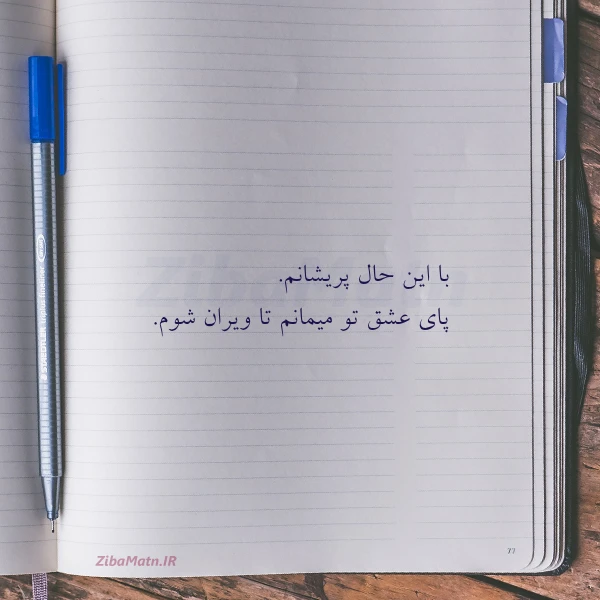 با این حال پریشانم.
پای عشق تو میمانم تا ویران شوم.
ZibaMatn.IR